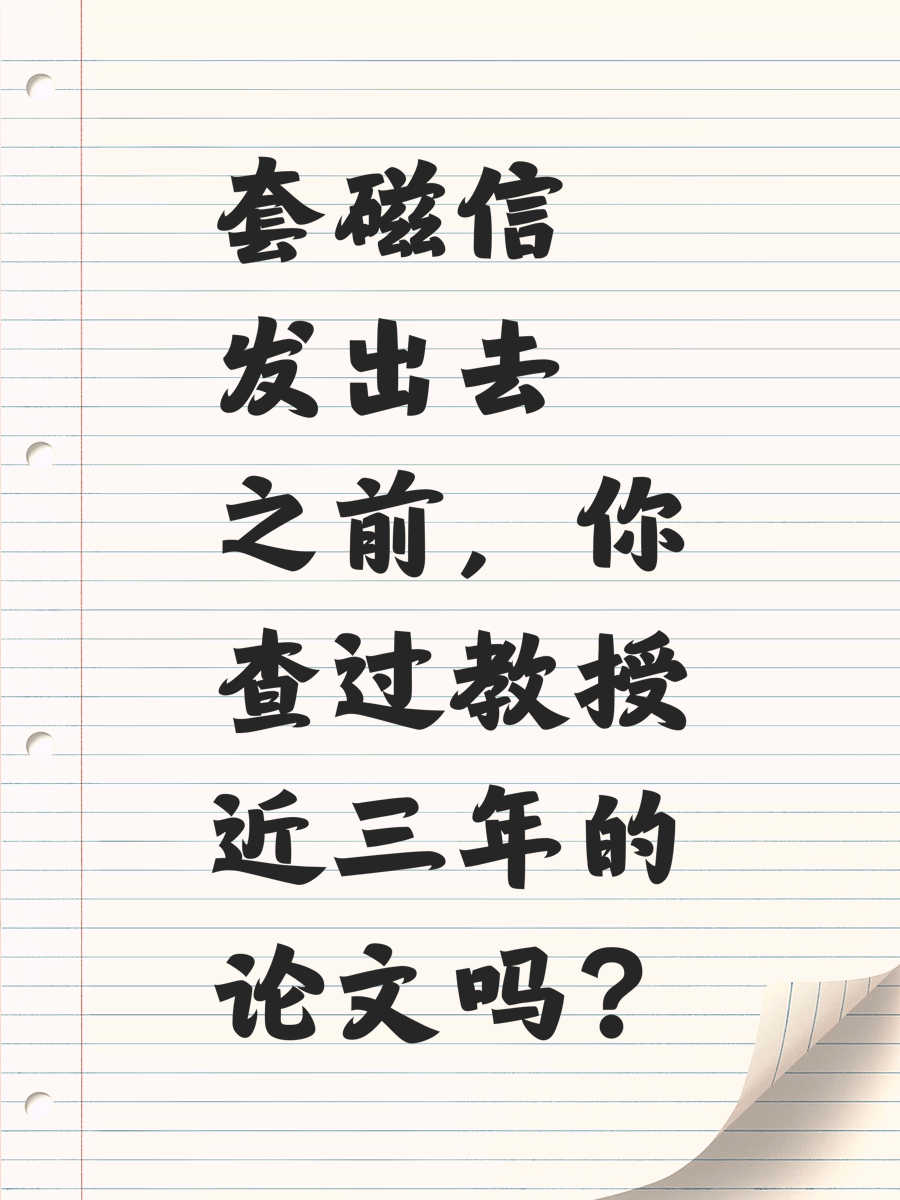 套磁信
发出去
之前，你
查过教授
近三年的
论文吗？